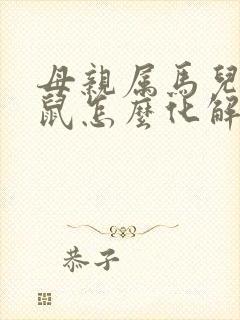 母親属馬兒
鼠怎麼化解
恭子